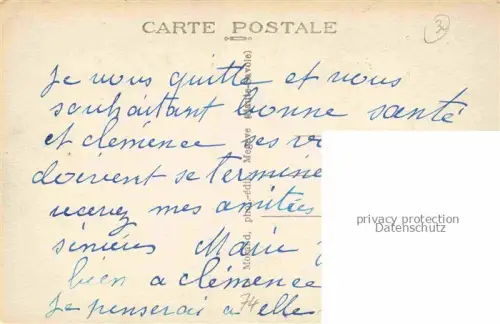 CARTE POSTALE
32
Je vous quitte et vous
souhaitant bonne santé
et clémence ses v
doivent se termine
recevez mes amitiés
sincères Marie
bien a clémence
Je penserai a elle
74
Morand, phot-édit. Megève (Haute-Savoie)
privacy protection
Datenschutz